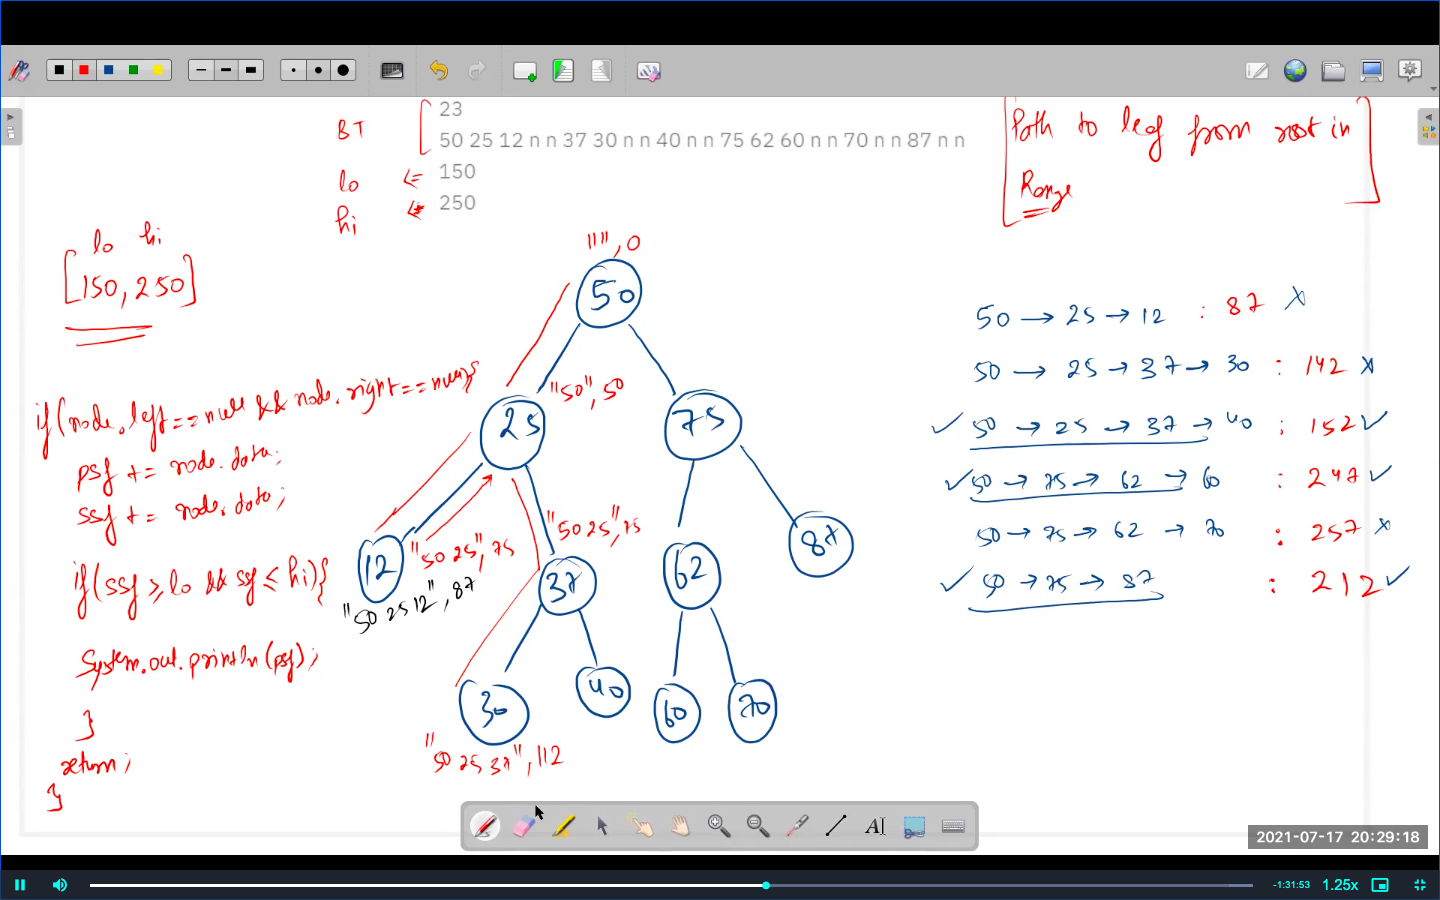 BT
23
50 25 12 n n 37 30 n n 40 n n 75 62 60 n n 70 n n 87 n n
lo <= 150
hi <= 250
Path to leaf from root in
Range
lo hi
[150, 250]
if(node.left == null && node.right == null){
psf += node.data;
ssf += node.data;
if(ssf ≥ lo && ssf ≤ hi){
System.out.println(psf);
}
return;
}
"", 0
50
"50", 50
25
75
"50 25", 75
"50 25", 75
12
37
62
87
"50 25 12", 87
30
40
60
70
"50 25 37", 112
50 → 25 → 12 : 87 x
50 → 25 → 37 → 30 : 142 x
✓ 50 → 25 → 37 → 40 : 152 ✓
✓ 50 → 75 → 62 → 60 : 247 ✓
50 → 75 → 62 → 70 : 257 x
✓ 50 → 75 → 87 : 212 ✓
AI
2021-07-17 20:29:18
-1:31:53
1.25x